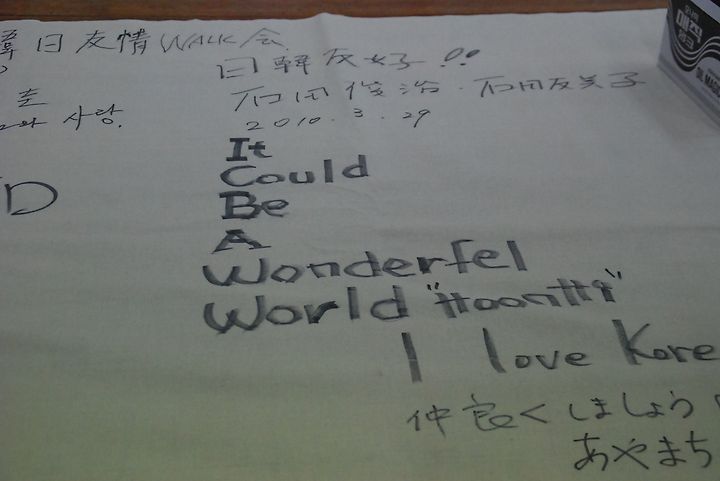 韓日友情WALK会
日韓友好!!
石田俊治・石田友美子
2010.3.29
사랑.
D
It
Could
Be
A
Wonderfel
World "HoonHi"
I love Kore
仲良くしましょう
あやまち
매직